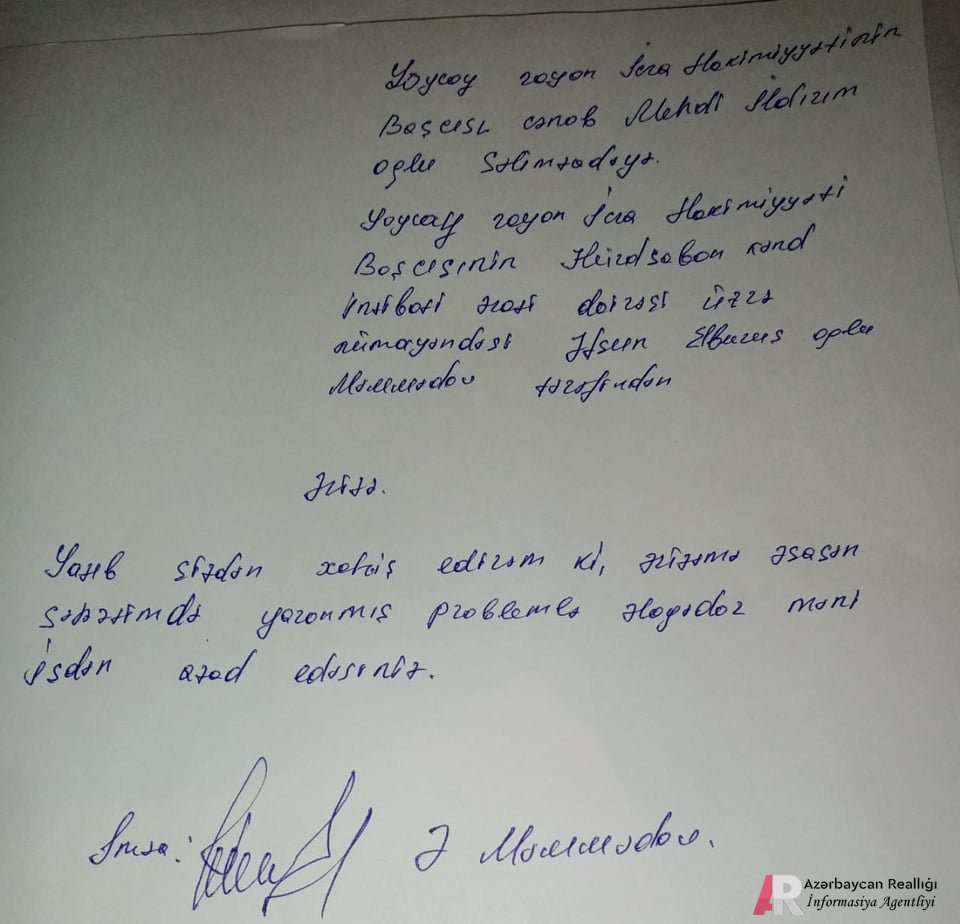 Göyçay rayon İcra Hakimiyyətinin
Başçısı cənab Mehdi İldırım
oğlu Səlimzadəyə.
Göyçay rayon İcra Hakimiyyəti
Başçısının Hürdsaban kənd
inzibati ərazi dairəsi üzrə
nümayəndəsi Əfsun Elburus oğlu
Məmmədov tərəfindən
Ərizə.
Yazıb sizdən xahiş edirəm ki, ərizəmə əsasən
səhhətimdə yaranmış problemlə əlaqədar məni
işdən azad edəsiniz.
İmza: Ə Məmmədov.
Azərbaycan Reallığı
İnformasiya Agentliyi